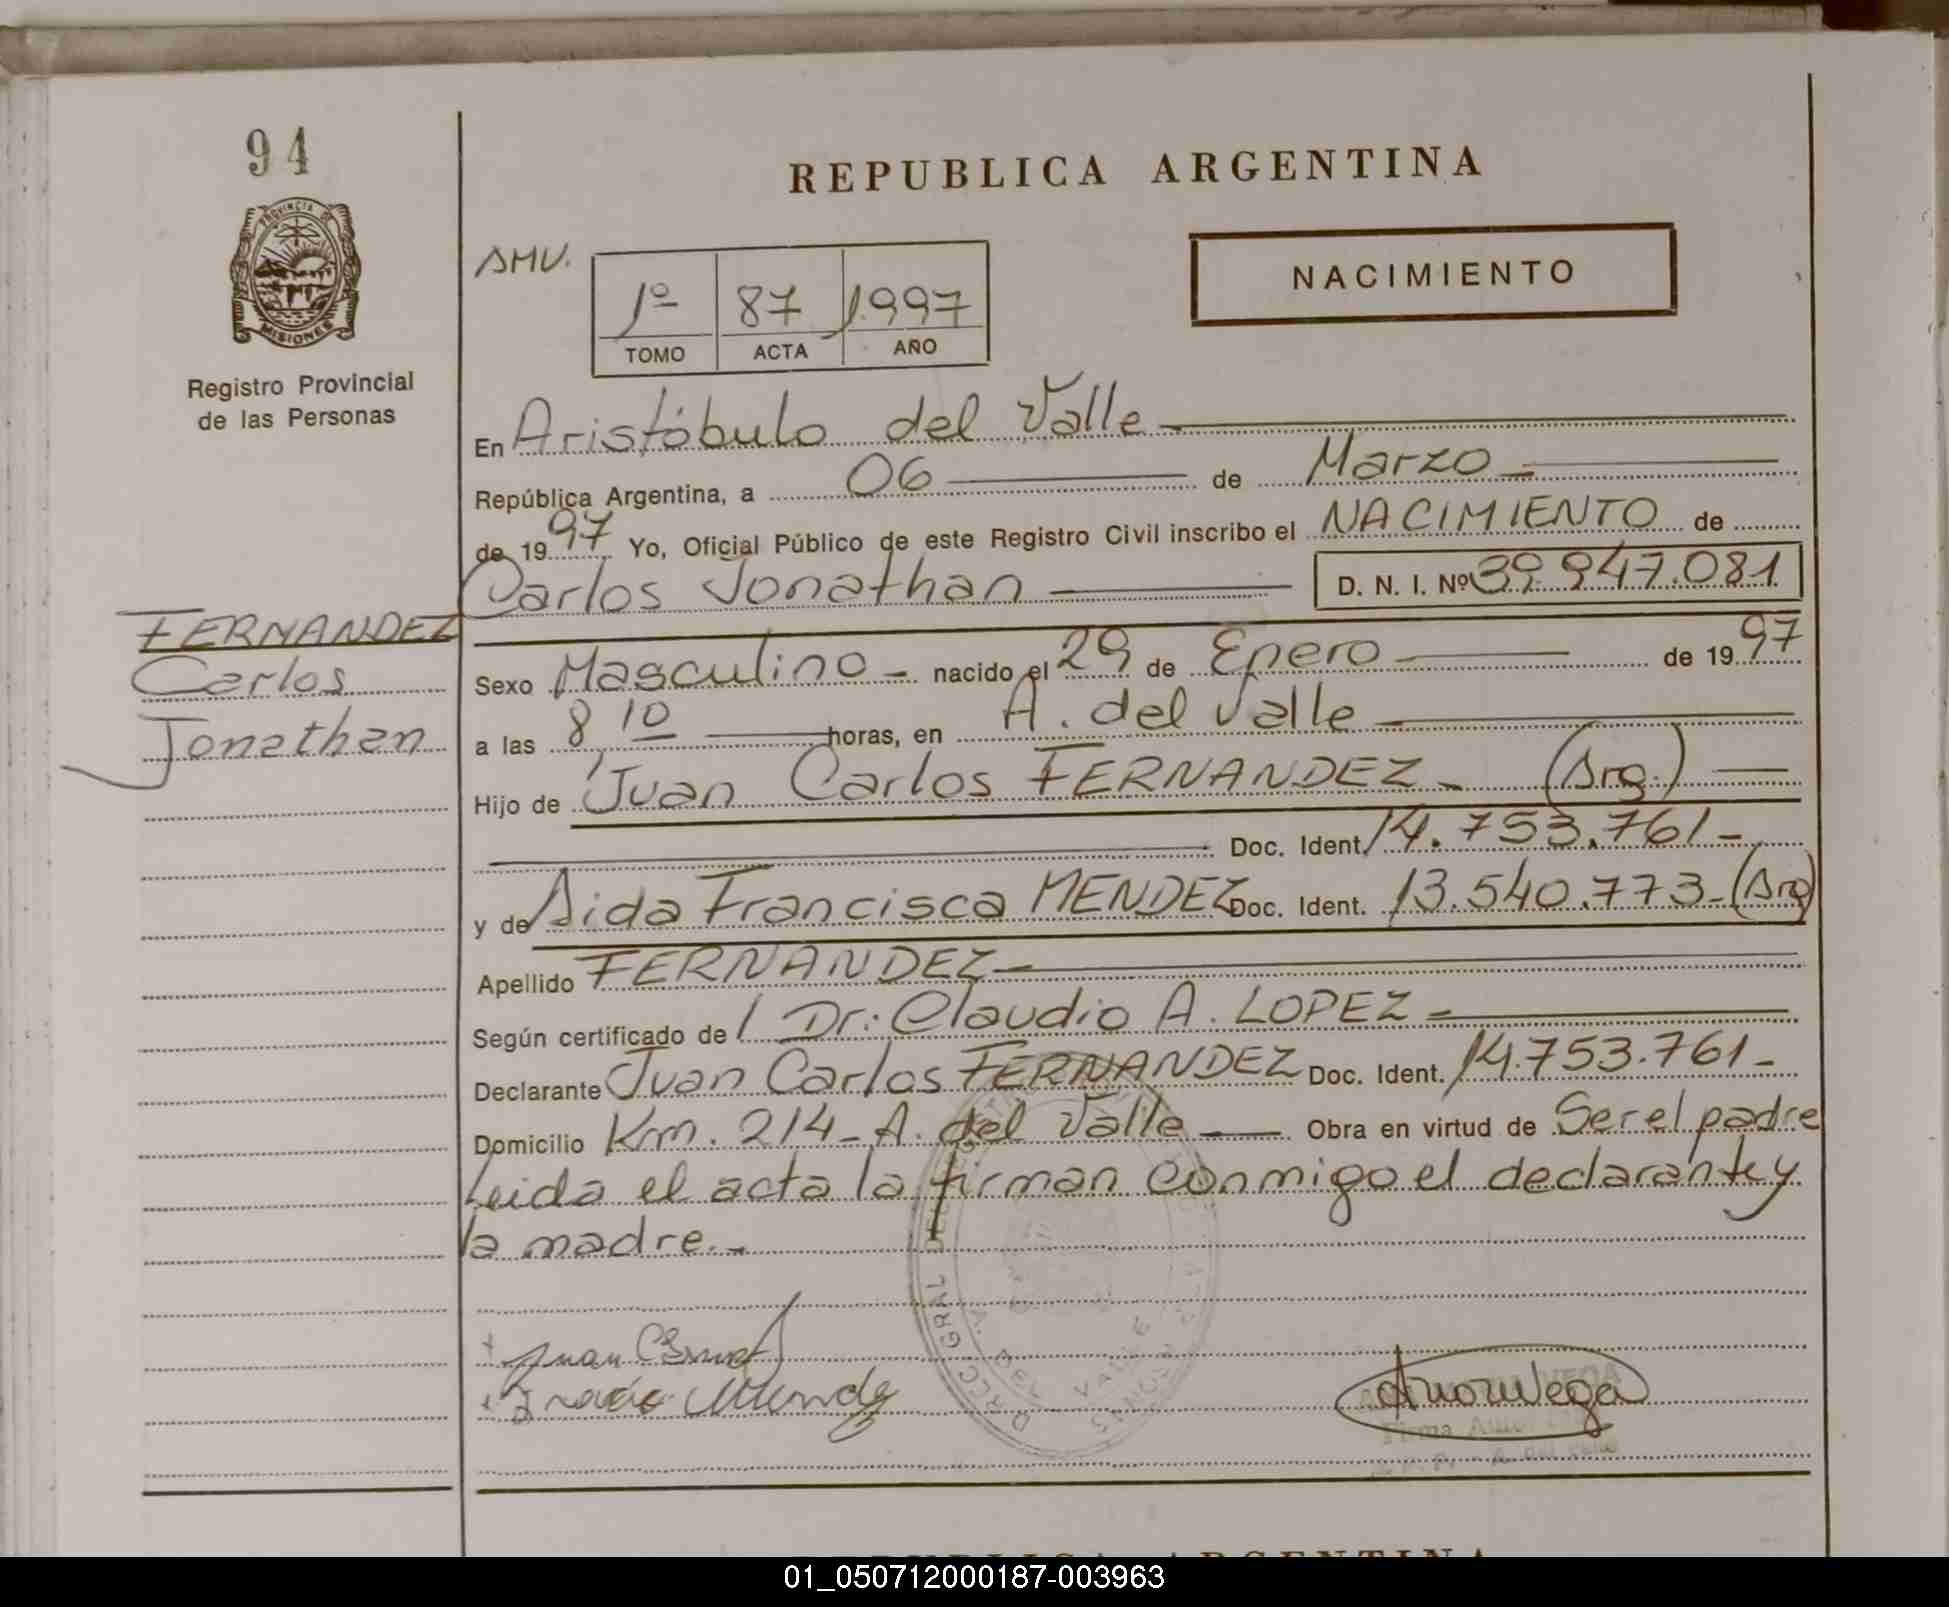 94
REPUBLICA ARGENTINA
PROVINCIA DE
MISIONES
Registro Provincial
de las Personas
AMV.
1º 87 1.997
TOMO ACTA AÑO
NACIMIENTO
En Aristóbulo del Valle
República Argentina, a 06 de Marzo
de 1997 Yo, Oficial Público de este Registro Civil inscribo el NACIMIENTO de
Carlos Jonathan D. N. I. Nº 39.947.081
FERNANDEZ
Carlos
Jonathan
Sexo Masculino nacido el 29 de Enero de 1997
a las 8,10 horas, en A. del Valle
Hijo de Juan Carlos FERNANDEZ (Arg.)
Doc. Ident. 14.753.761
y de Aida Francisca MENDEZ Doc. Ident. 13.540.773 (Arg)
Apellido FERNANDEZ
Según certificado de Dr: Claudio A. LOPEZ
Declarante Juan Carlos FERNANDEZ Doc. Ident. 14.753.761
Domicilio Km. 214 - A. del Valle Obra en virtud de Ser el padre
Leida el acta la firman conmigo el declarante y
la madre.
Juan
VEGA
Firma
A. del Valle
GRAL
A. DEL VALLE
REPUBLICA ARGENTINA
01_050712000187-003963